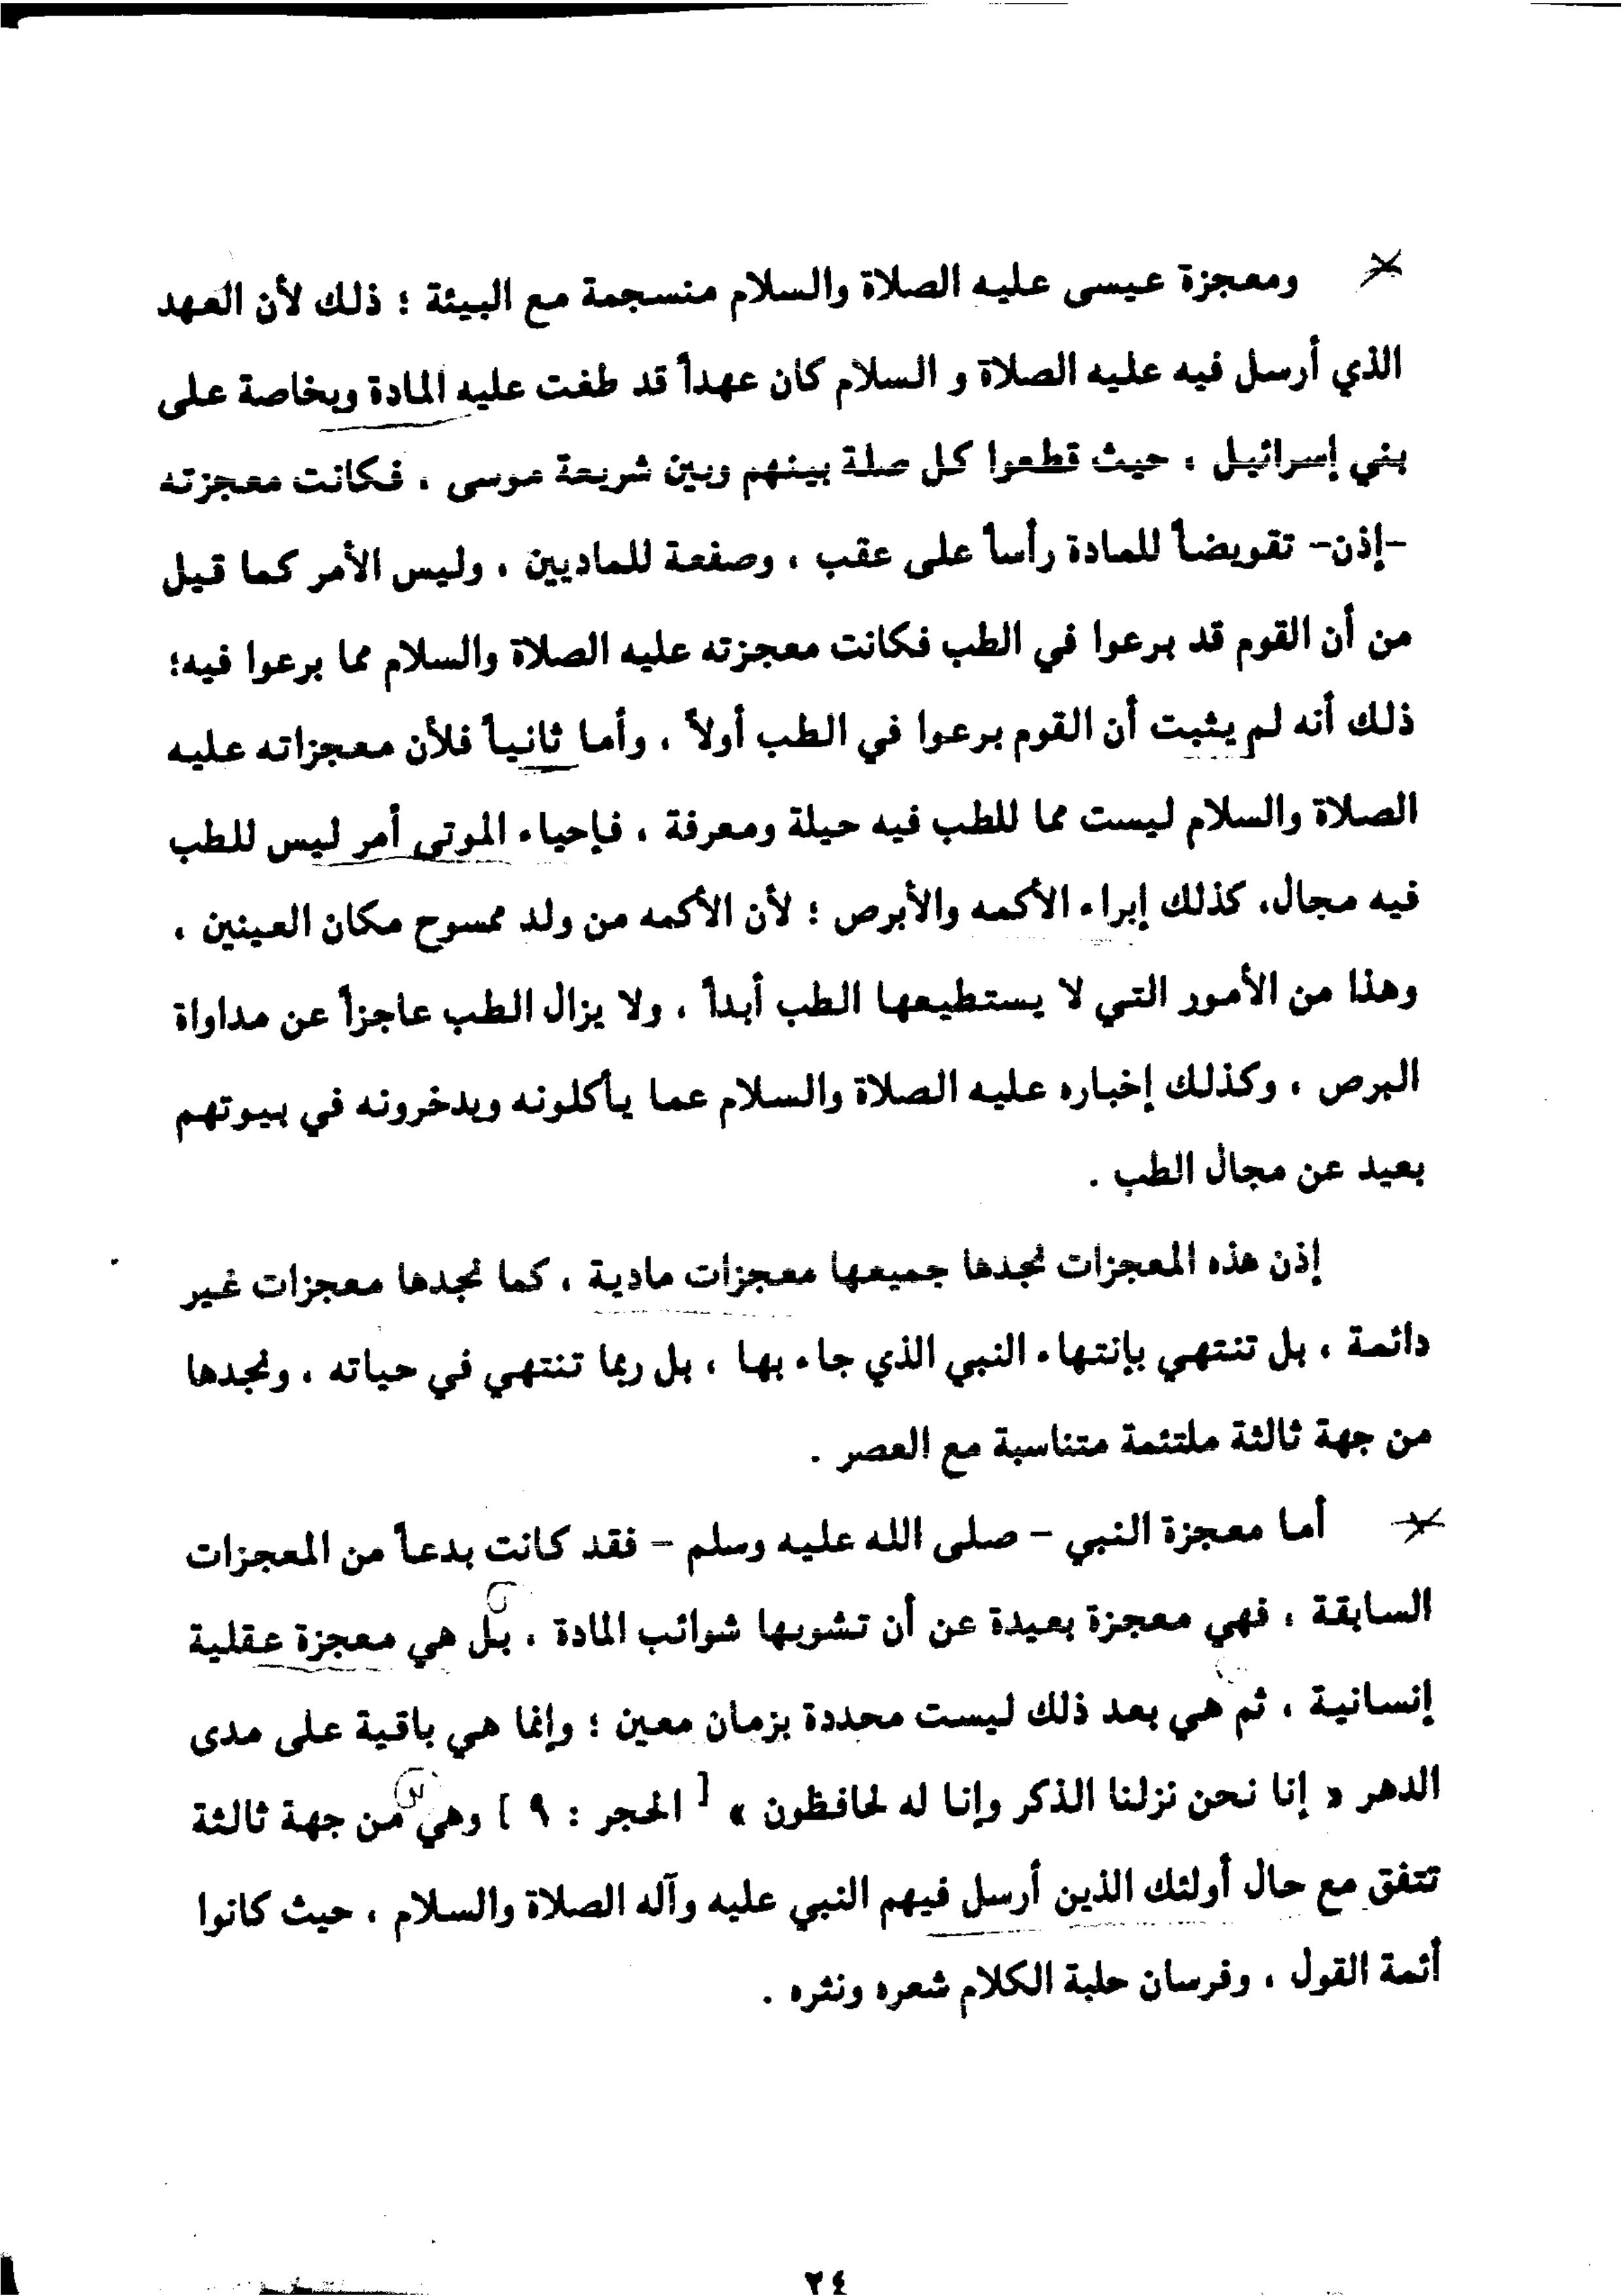 ومعجزة عيسى عليه الصلاة والسلام منسجمة مع البيئة ؛ ذلك لأن العهد
الذي أرسل فيه عليه الصلاة و السلام كان عهداً قد طغت عليه المادة وبخاصة على
بني إسرائيل ، حيث قطعوا كل صلة بينهم وبين شريعة موسى ، فكانت معجزته
-إذن- تقويضاً للمادة رأساً على عقب ، وصفعة للماديين ، وليس الأمر كما قيل
من أن القوم قد برعوا في الطب فكانت معجزته عليه الصلاة والسلام مما برعوا فيه؛
ذلك أنه لم يثبت أن القوم برعوا في الطب أولاً ، وأما ثانياً فلأن معجزاته عليه
الصلاة والسلام ليست مما للطب فيه حيلة ومعرفة ، فإحياء الموتى أمر ليس للطب
فيه مجال، كذلك إبراء الأكمه والأبرص ؛ لأن الأكمه من ولد ممسوح مكان العينين ،
وهذا من الأمور التي لا يستطيعها الطب أبداً ، ولا يزال الطب عاجزاً عن مداواة
البرص ، وكذلك إخباره عليه الصلاة والسلام عما يأكلونه ويدخرونه في بيوتهم
بعيد عن مجال الطب .
إذن هذه المعجزات نجدها جميعها معجزات مادية ، كما نجدها معجزات غير
دائمة ، بل تنتهي بإنتهاء النبي الذي جاء بها ، بل ربما تنتهي في حياته ، ونجدها
من جهة ثالثة ملتئمة متناسبة مع العصر .
أما معجزة النبي - صلى الله عليه وسلم - فقد كانت بدعاً من المعجزات
السابقة ، فهي معجزة بعيدة عن أن تشوبها شوائب المادة ، بل هي معجزة عقلية
إنسانية ، ثم هي بعد ذلك ليست محددة بزمان معين ؛ وإنما هي باقية على مدى
الدهر « إنا نحن نزلنا الذكر وإنا له لحافظون » [ الحجر : ٩ ] وهي من جهة ثالثة
تتفق مع حال أولئك الذين أرسل فيهم النبي عليه وآله الصلاة والسلام ، حيث كانوا
أئمة القول ، وفرسان حلبة الكلام شعره ونثره .
٢٤